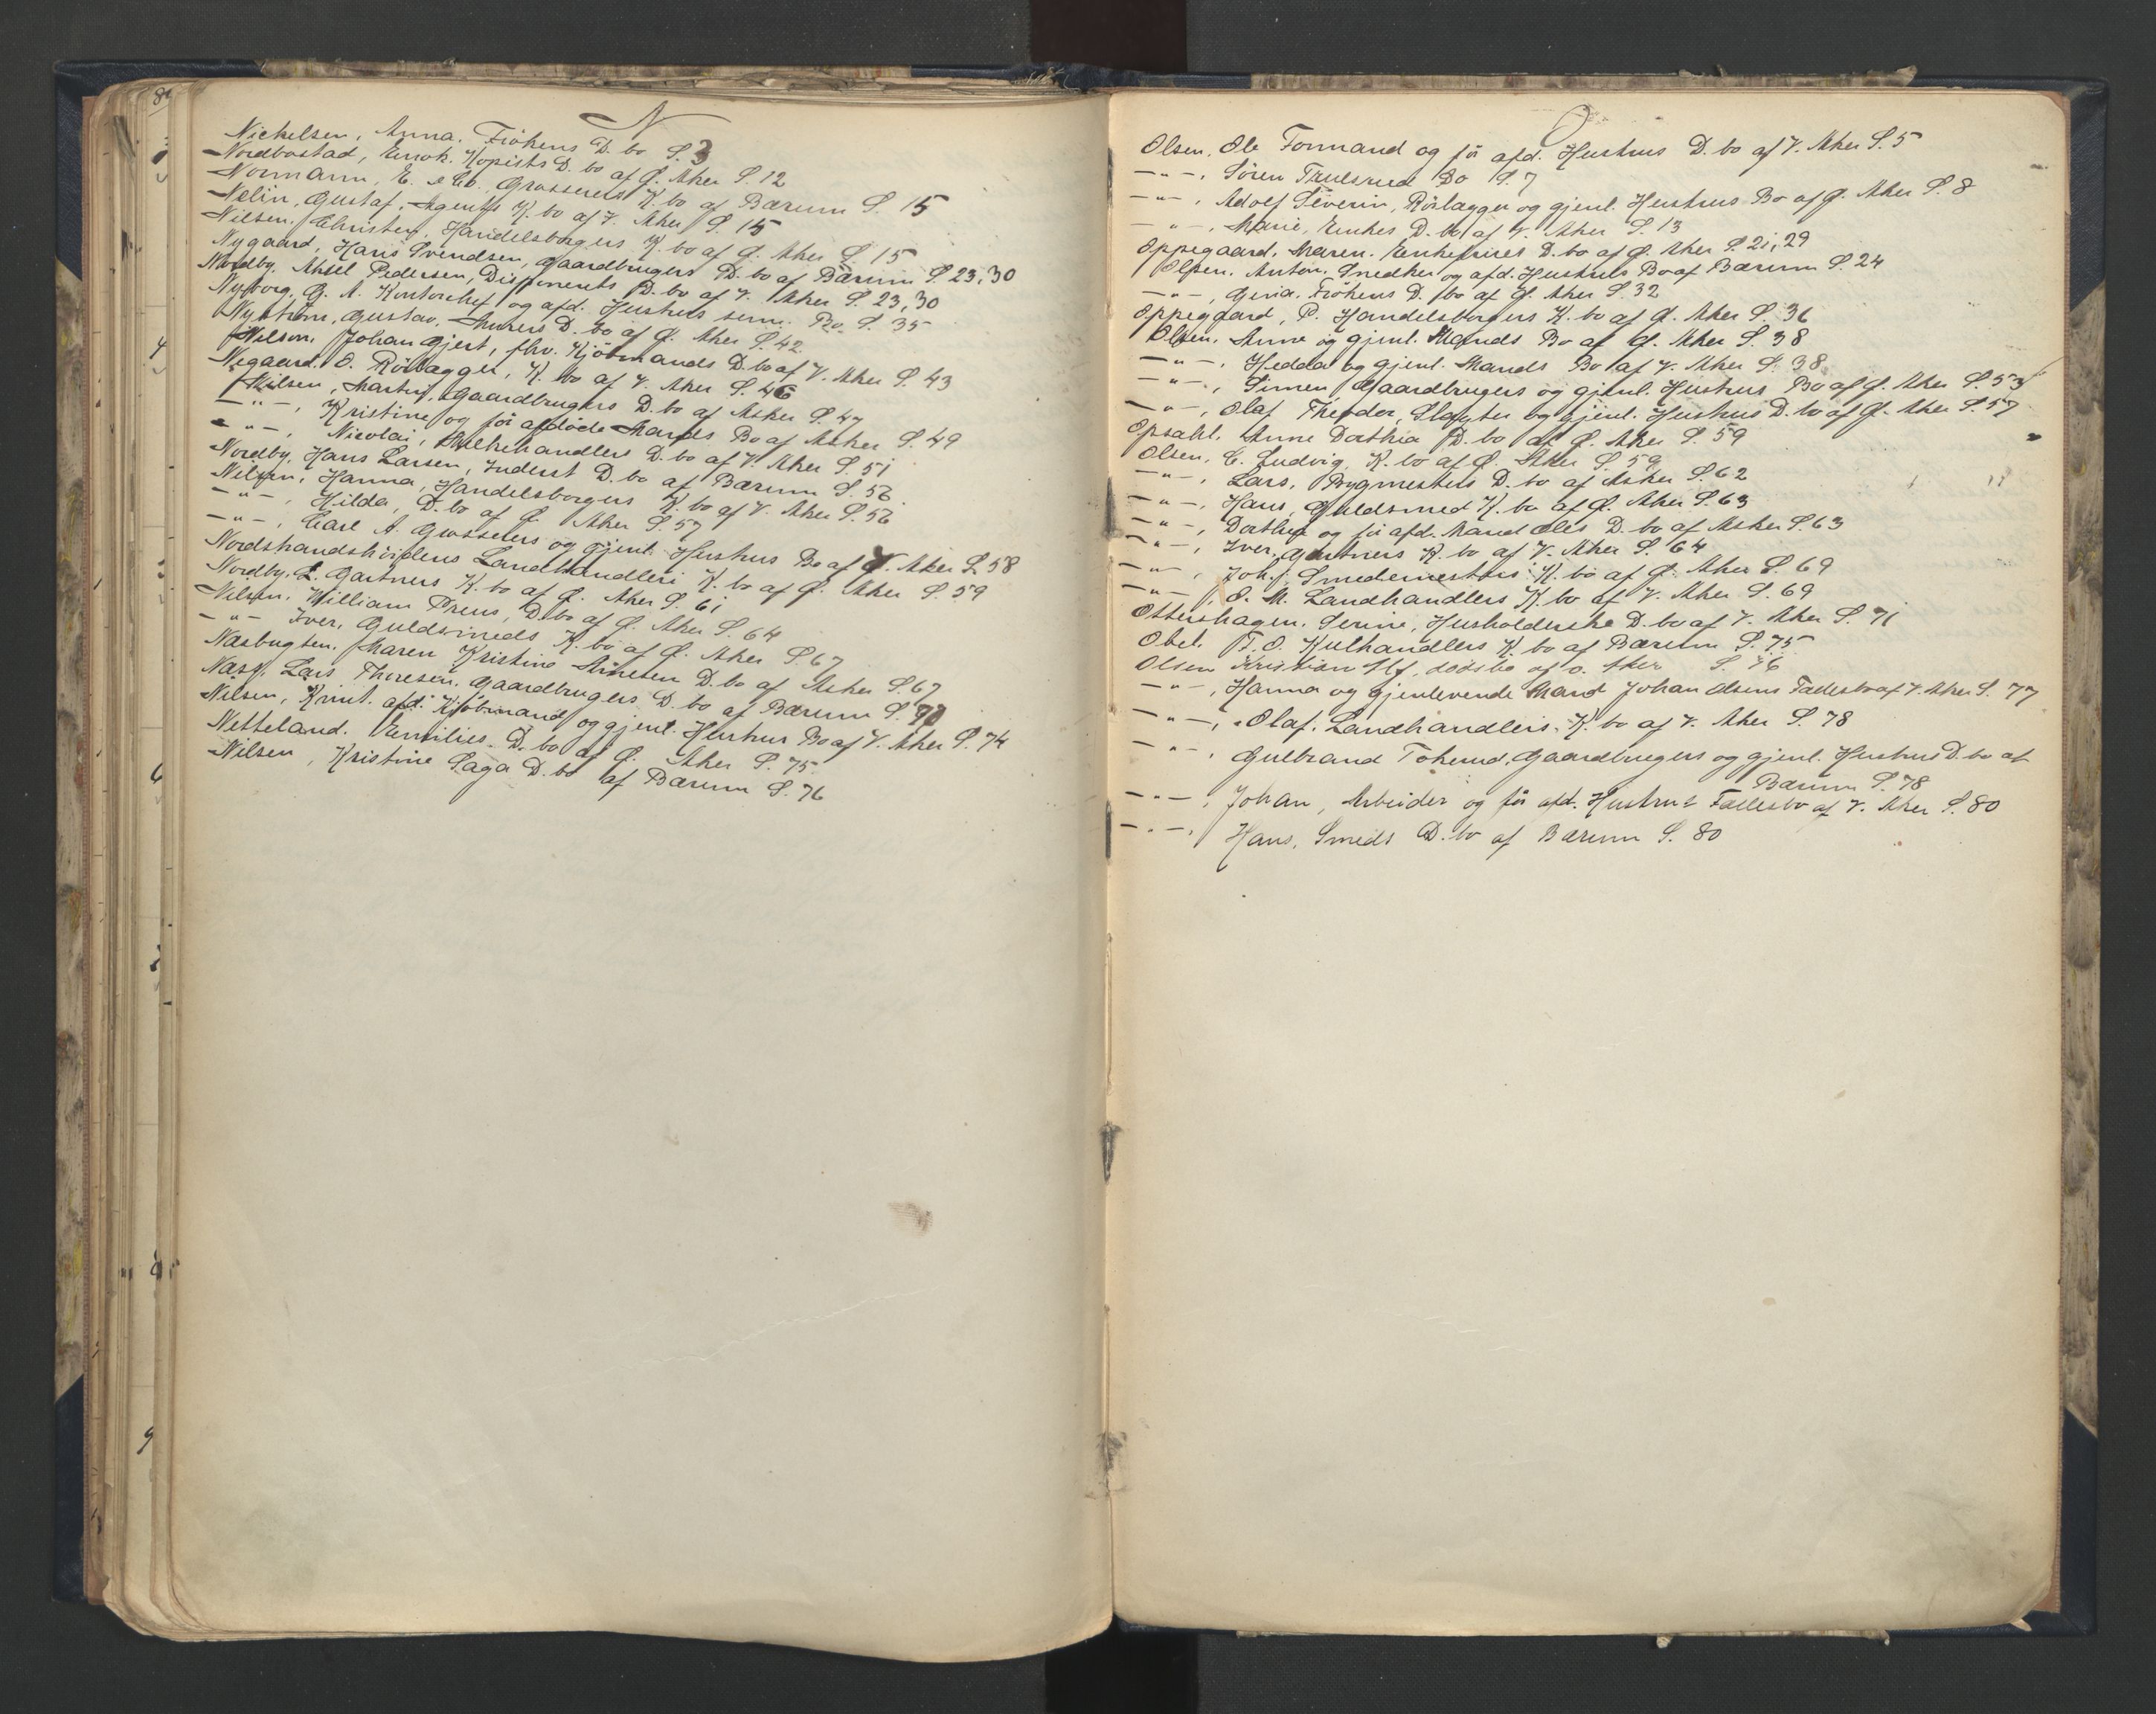 N
Nickelsen, Anna. Frökens D. bo S. 3
Nordbostad, Enok. Kopists D. bo af Ø. Aker S. 12
Normann, E. & Co. Grosserers K. bo af Bærum S. 15
Nelin, Gustaf, Agents K. bo af V. Aker S. 15
Nilsen, Christen, Handelsborgers K. bo af Ø. Aker S. 15
Nygaard, Hans Svendsen, Gaardbrugers D. bo af Bærum S. 23, 30
Nordby, Aksel Pedersen, Disponents D. bo af V. Aker S. 23, 30
Nyborg, G. A. Kontorchef og afd. Hustrus sem. Bo. S. 35
Nyström, Gustav, Murers D. bo af Ø. Aker S. 42
Nilson, Johan Gjert, fhv. Kjöbmands D. bo af V. Aker S. 43
Negaard, O. Rörlægger, K. bo af V. Aker S. 46
Nilsen, Martin, Gaardbrugers D. bo af Asker S. 47
— " —, Kristine og för afdöde Mands Bo af Asker S. 49
— " —, Nicolai, Melkehandlers D. bo af V. Aker S. 51
Nordby, Hans Larsen, Inderst D. bo af Bærum S. 56
Nilsen, Hanna, Handelsborgers K. bo af V. Aker S. 56
— " —, Hilda, D. bo af Ø. Aker S. 57
— " —, Carl A. Grosserers og gjenl. Hustrus Bo af V. Aker S. 58
Landhandleri K. bo af Ø. Aker S. 59
Nordby, L. Gartners K. bo af Ø. Aker S. 61
Nilsen, William Preus, D. bo af Ø. Aker S. 64
— " — Iver, Guldsmeds K. bo af Ø. Aker S. 67
Næsbugten, Maren Kristine D. bo af Asker S. 67
Næss, Lars Thoresen, Gaardbrugers D. bo af Bærum S. 70
Nilsen, Krint. afd. Kjöbmand og gjenl. Hustrus Bo af V. Aker S. 74
Netteland, Emilies D. bo af Ø. Aker S. 75
Nilsen, Kristine Saga D. bo af Bærum S. 76
O
Olsen, Ole Formand og för afd. Hustrus D. bo af V. Aker S. 5
— " —, Sören Trulsrud Bo S. 7
— " —, Adolf Severin, Rörlægger og gjenl. Hustrus Bo af Ø. Aker S. 8
— " —, Marie, Enkes D. bo af V. Aker S. 13
Oppegaard, Maren. Enkefrues D. bo af Ø. Aker S. 21, 29
Olsen, Anton, Snedker og afd. Hustrus Bo af Bærum S. 24
— " —, Gina. Frökens D. bo af Ø. Aker S. 32
Oppegaard, P. Handelsborgers K. bo af Ø. Aker S. 36
Olsen, Anne og gjenl. Mands Bo af Ø. Aker S. 38
— " —, Hedda og gjenl. Mands Bo af V. Aker S. 38
— " —, Simen, Gaardbrugers og gjenl. Hustrus Bo af Ø. Aker S. 53
— " —, Olaf Theodor, Slagter og gjenl. Hustrus D. bo af Ø. Aker S. 57
Opsahl, Anne Dorthia D. bo af Ø. Aker S. 59
Olsen, C. Ludvig, K. bo af Ø. Aker S. 59
— " —, Lars, Bygmesters D. bo af Asker S. 62
— " —, Hans, Guldsmed K. bo af Ø. Aker S. 63
— " —, Dorthea og för afd. Mand Oles D. bo af Asker S. 63
— " —, Iver, Gartners K. bo af V. Aker S. 64
— " —, Joh. Smedemesters K. bo af Ø. Aker S. 69
— " —, O. M. Landhandlers K. bo af V. Aker S. 69
Ottershagen, Serine, Husholderske D. bo af V. Aker S. 71
Obel, T. O. Kulhandlers K. bo af Bærum S. 75
Olsen Kristian Alf, dödsbo af ö. Aker S. 76
— " —, Hanna og gjenlevende Mand Johan Olsens Fællesbo af V. Aker S. 77
— " —, Olaf, Landhandlers K. bo af V. Aker S. 78
— " —, Gulbrand Tokerud, Gaardbrugers og gjenl. Hustrus D. bo af
Bærum S. 78
— " —, Johan, Arbeider og för afd. Hustrus Fællesbo af V. Aker S. 80
— " —, Hans, Smeds D. bo af Bærum S. 80